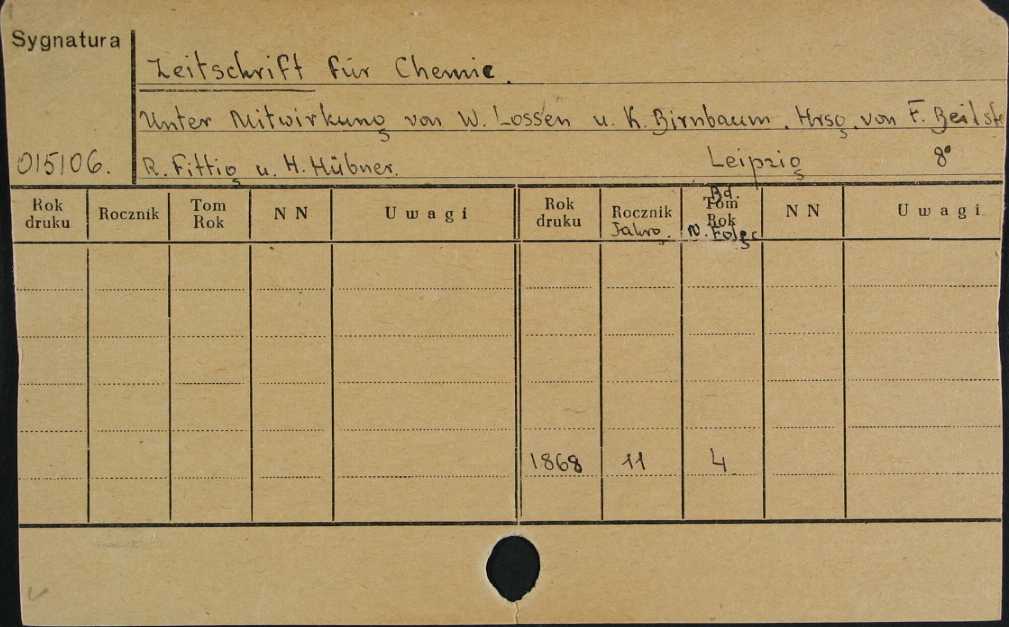 Sygnatura
Zeitschrift für Chemie.
Unter Mitwirkung von W. Lossen u. K. Birnbaum. Hrsg. von F. Beilste
015106. R. Fittig u. H. Hübner. Leipzig 8°
Rok druku Rocznik Tom Rok N N Uwagi Rok druku Rocznik Jahrg. Bd. Tom Rok N. Folge N N Uwagi
1868 11 4